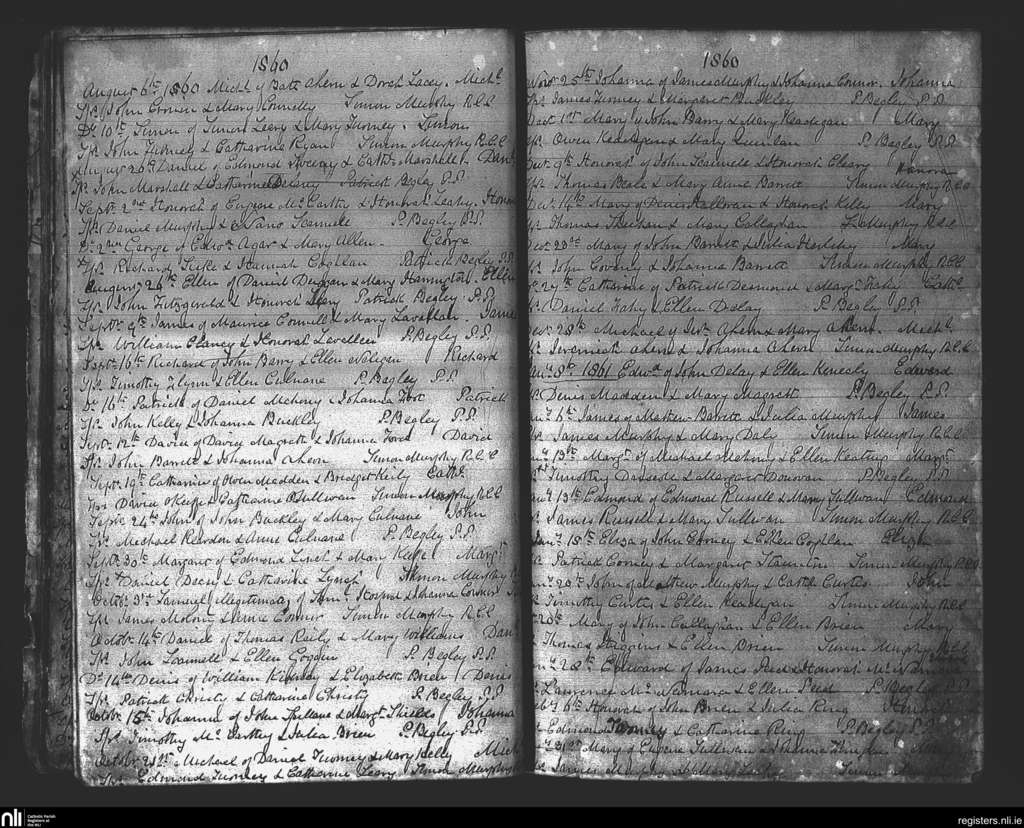 1860
August 6th 1860 Michl of Batt Ahern & Dorah Lacey. Michl
Sps John Cronin & Mary Connelly Simon Murphy R.C.C
Do 10th Simon of Simon Leary & Mary Twomey. Simon
Sps John Twomey & Catharine Ryan Simon Murphy R.C.C
August 26th Daniel of Edmond & Cathe Marshall. Danl
Sps John Marshall & Catharine Delaney Patrick Begley P.P.
Septr 2nd Honorah of Eugene Mc Carthy & Honorah Leahy. Honor
Sps Daniel Murphy & Nano Scannell P. Begley P.P.
Do 2nd George of Edwd Agar & Mary Allen. George
Sps Richard & Hannah Coghlan Patrick Begley P.P.
August 26th Ellen of Daniel Duggan & Mary Hannigan. Ellen
Sps John Fitzgerald & Honorah Leary Patrick Begley P.P.
Septr 9th James of Maurice Connell & Mary Lavallan. James
Sps William Clancy & Honorah Lavallen P. Begley P.P.
Septr 16th Richard of John Barry & Ellen Richard
Sps Timothy Flynn & Ellen Culnane P. Begley P.P.
Do 16th Patrick of Daniel Mehony & Johanna Patrick
Sps John Kelly & Johanna Buckley P. Begley P.P.
Septr 12th David of David Magrath & Johanna David
Sps John Barrett & Johanna Ahern Simon Murphy R.C.C
Septr 19th Catharine of Owen Madden & Bridget Kiely Cathe
Sps David O'Keefe & Catharine O'Sullivan Simon Murphy R.C.C
Septr 24th John of John Buckley & Mary Culnane John
Sps Michael Reardon & Anne Culnane P. Begley P.P.
Septr 30th Margaret of Edmond Lynch & Mary Keefe Margt
Sps Daniel Deen & Catharine Lynch Simon Murphy
Octobr 3rd Samuel Illegitimacy of & Johanna Connor
Sps James Molony & Anne Connor Simon Murphy R.C.C
Octobr 14th Daniel of Thomas Reily & Mary Williams Danl
Sps John Scannell & Ellen Goggin P. Begley P.P.
Do 14th Denis of William Kidney & Elizabeth Brien Denis
Sps Patrick Christy & Catharine Christy P. Begley P.P
Octobr 15th Johanna of John Spillane & Margt Shields Johanna
Sps Timothy Mc Carthy & Julia Brien P. Begley P.P.
Octobr 23rd Michael of Daniel Twomey & Mary Kelly Mich
Sps Edmond Twomey & Catharine Leary Simon Murphy
1860
Novr 25th Johanna of James Murphy & Johanna Connor. Johanna
Sps James Twomey & Margaret Buckley P. Begley P.P.
Dect 1st Mary of John Barry & Mary Keadegan Mary
Sps Owen Keadegan & Mary Quinlan P. Begley P.P.
Decr 9th Honorah of John Scannell & Honorah Cleary Hanora
Sps Thomas Beale & Mary Anne Barrett Simon Murphy R.C.C
Decr 14th Mary of Denis Halloran & Honorah Kelly Mary
Sps Thomas & Mary Callaghan S. Murphy R.C.C
Decr 23rd Mary of John Barrett & Julia Herlihy Mary
Sps John Coveny & Johanna Barrett Simon Murphy R.C.C
27th Catharine of Patrick Desmond & Margt Fahy Cathe
Sps Daniel Fahy & Ellen Delay P. Begley P.P.
Decr 28th Michael of Jer. Ahern & Mary Ahern. Michl
Sps Jeremiah Ahern & Johanna Ahern Simon Murphy R.C.C
Jany 8th 1861 Edwd of John Delay & Ellen Keneely Edward
Denis Madden & Mary Magrath P. Begley P.P.
James of Mathew Barrett & Julia Murphy James
Sps James Murphy & Mary Daly Simon Murphy R.C.C
13th Margt of Michael Mehony & Ellen Keating Margt
Timothy & Margaret Donovan P. Begley P.P.
13th Edmond of Edmond Russell & Mary Sullivan Edmond
James Russell & Mary Sullivan Simon Murphy R.C.C
Jany 15th Eliza of John Cooney & Ellen Coghlan Eliza
Patrick Cooney & Margaret Staunton Simon Murphy R.C.C
20th John of Mathew Murphy & Cathe Curtis John
Timothy Curtis & Ellen Keadegan Simon Murphy R.C.C
20th Mary of John Callaghan & Ellen Brien Mary
Thomas Higgins & Ellen Brien Simon Murphy R.C.C
28th Edward of James Peed & Honorah Mc Namara
Laurence Mc Namara & Ellen Peed P. Begley P.P.
6th Honorah of John Brien & Julia Ring
Edmond Twomey & Catharine Ring P. Begley P.P.
Mary of Eugene Sullivan & Johanna
James Murphy & Mary Simon
nli
Catholic Parish
Registers at
the NLI
registers.nli.ie